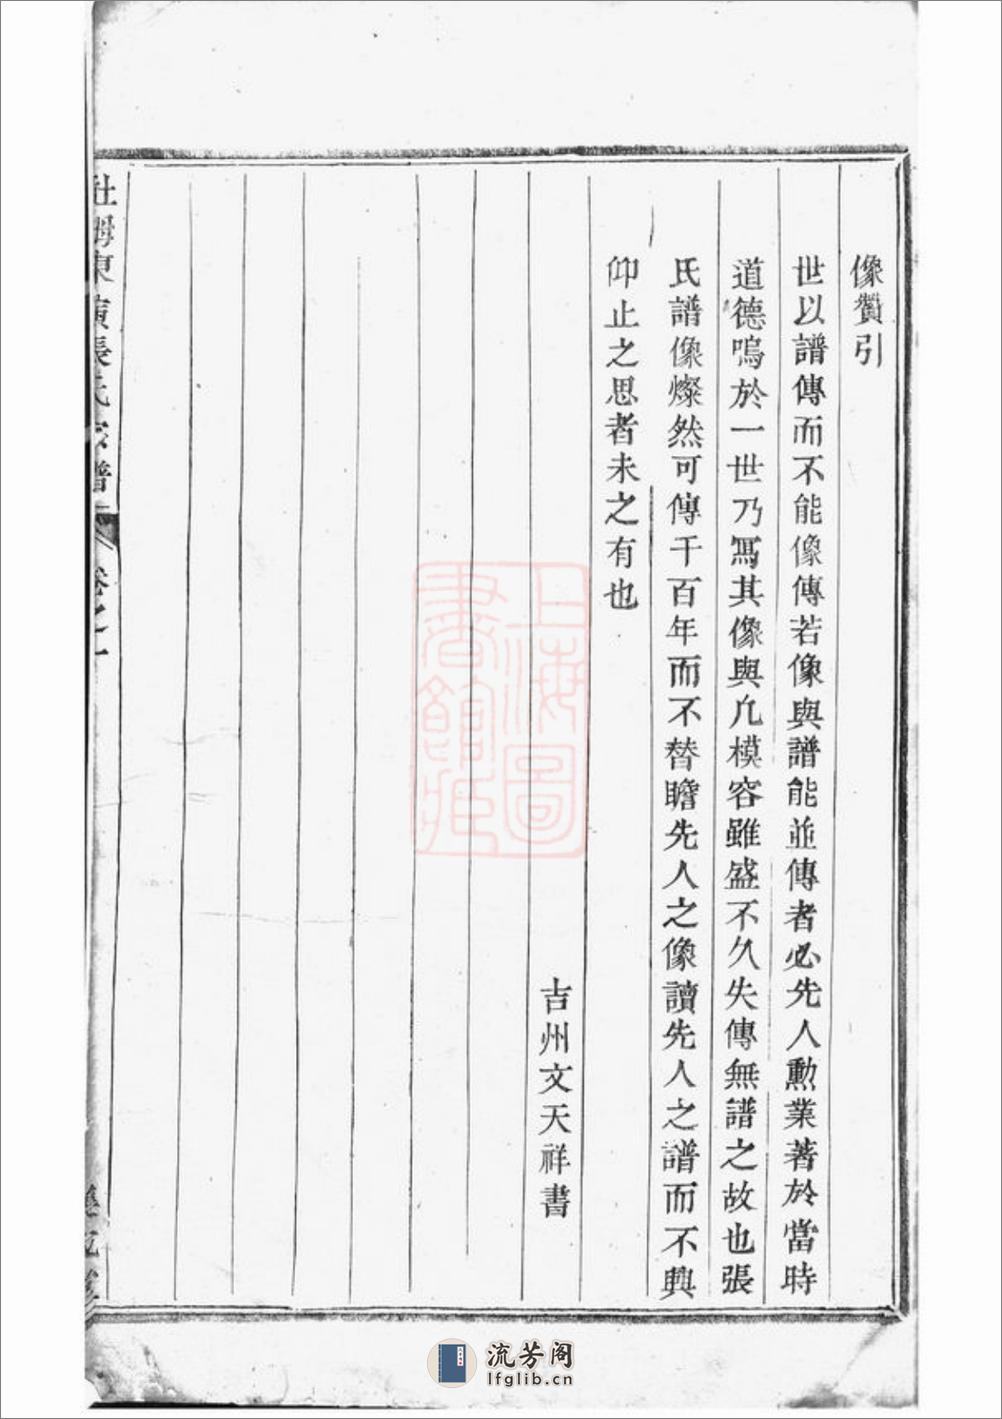 像贊引
世以譜傳而不能像傳若像與譜能並傳者必先人勳業著於當時
道德鳴於一世乃寫其像與凢模容雖盛不久失傳無譜之故也張
氏譜像燦然可傳千百年而不替瞻先人之像讀先人之譜而不興
仰止之思者未之有也
吉州文天祥書
東 張氏 譜
卷之一
上海圖書館藏
流芳阁
lfglib.cn